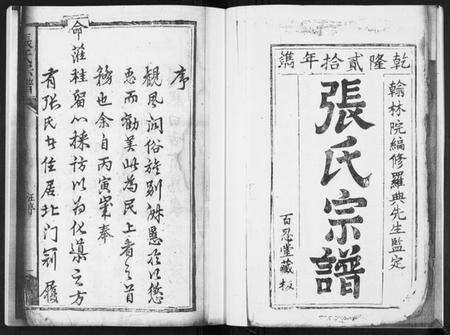 乾隆貳拾年鐫
翰林院編修羅典先生鑒定
張氏宗譜
百忍堂藏板
序
觀風問俗旌别淑慝所以懲
惡而勸美此為民上者之首
務也余自丙寅歲奉
命蒞桂留心採訪以為化導之方
有張氏世住居北門